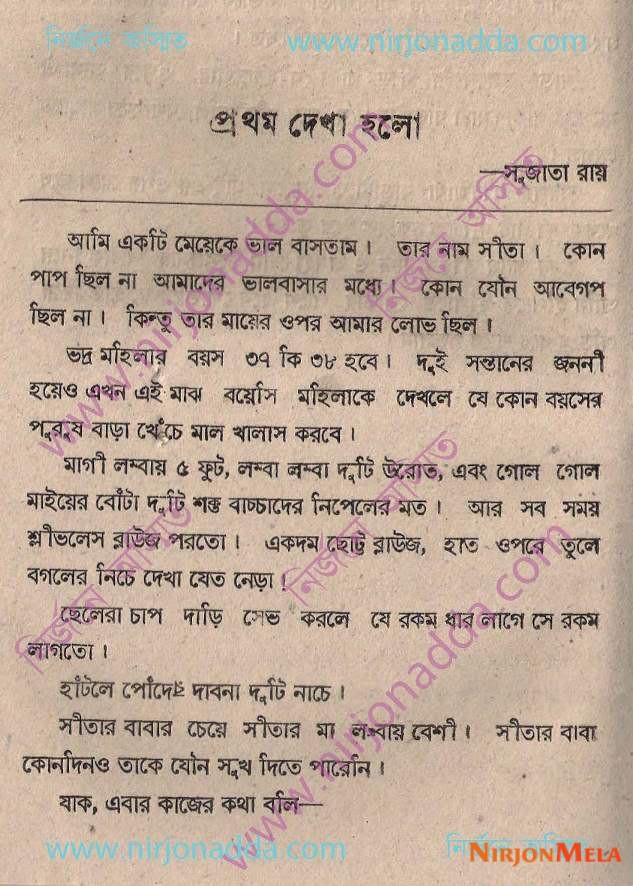 নির্জনে অস্মিত www.nirjonadda.com
প্রথম দেখা হলো
—সুজাতা রায়
আমি একটি মেয়েকে ভাল বাসতাম। তার নাম সীতা। কোন
পাপ ছিল না আমাদের ভালবাসার মধ্যে। কোন যৌন আবেগপ
ছিল না। কিন্তু তার মায়ের ওপর আমার লোভ ছিল।
ভদ্র মহিলার বয়স ৩৭ কি ৩৮ হবে। দুই সন্তানের জননী
হয়েও এখন এই মাঝ বয়েসি মহিলাকে দেখলে যে কোন বয়সের
পুরুষ বাড়া খেঁচে মাল খালাস করবে।
মাগী লম্বায় ৫ ফুট, লম্বা লম্বা দুটি উরোত, এবং গোল গোল
মাইয়ের বোঁটা দুটি শক্ত বাচ্চাদের নিপেলের মত। আর সব সময়
শ্লীভলেস ব্লাউজ পরতো। একদম ছোট্ট ব্লাউজ, হাত ওপরে তুলে
বগলের নিচে দেখা যেত নেড়া।
ছেলেরা চাপ দাড়ি সেভ করলে যে রকম ধার লাগে সে রকম
লাগতো।
হাঁটলে পোঁদের দাবনা দুটি নাচে।
সীতার বাবার চেয়ে সীতার মা লম্বায় বেশী। সীতার বাবা
কোনদিনও তাকে যৌন সুখ দিতে পারেনি।
যাক, এবার কাজের কথা বলি—
www.nirjonadda.com নির্জনে অস্মিত
NIRJONMELA
www.nirjonadda.com নির্জনে অস্মিত
নির্জনে অস্মিত www.nirjonadda.com